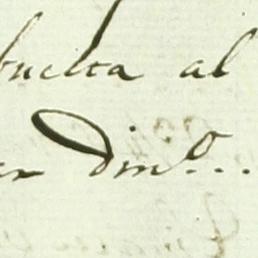 buelta al
en dinº...